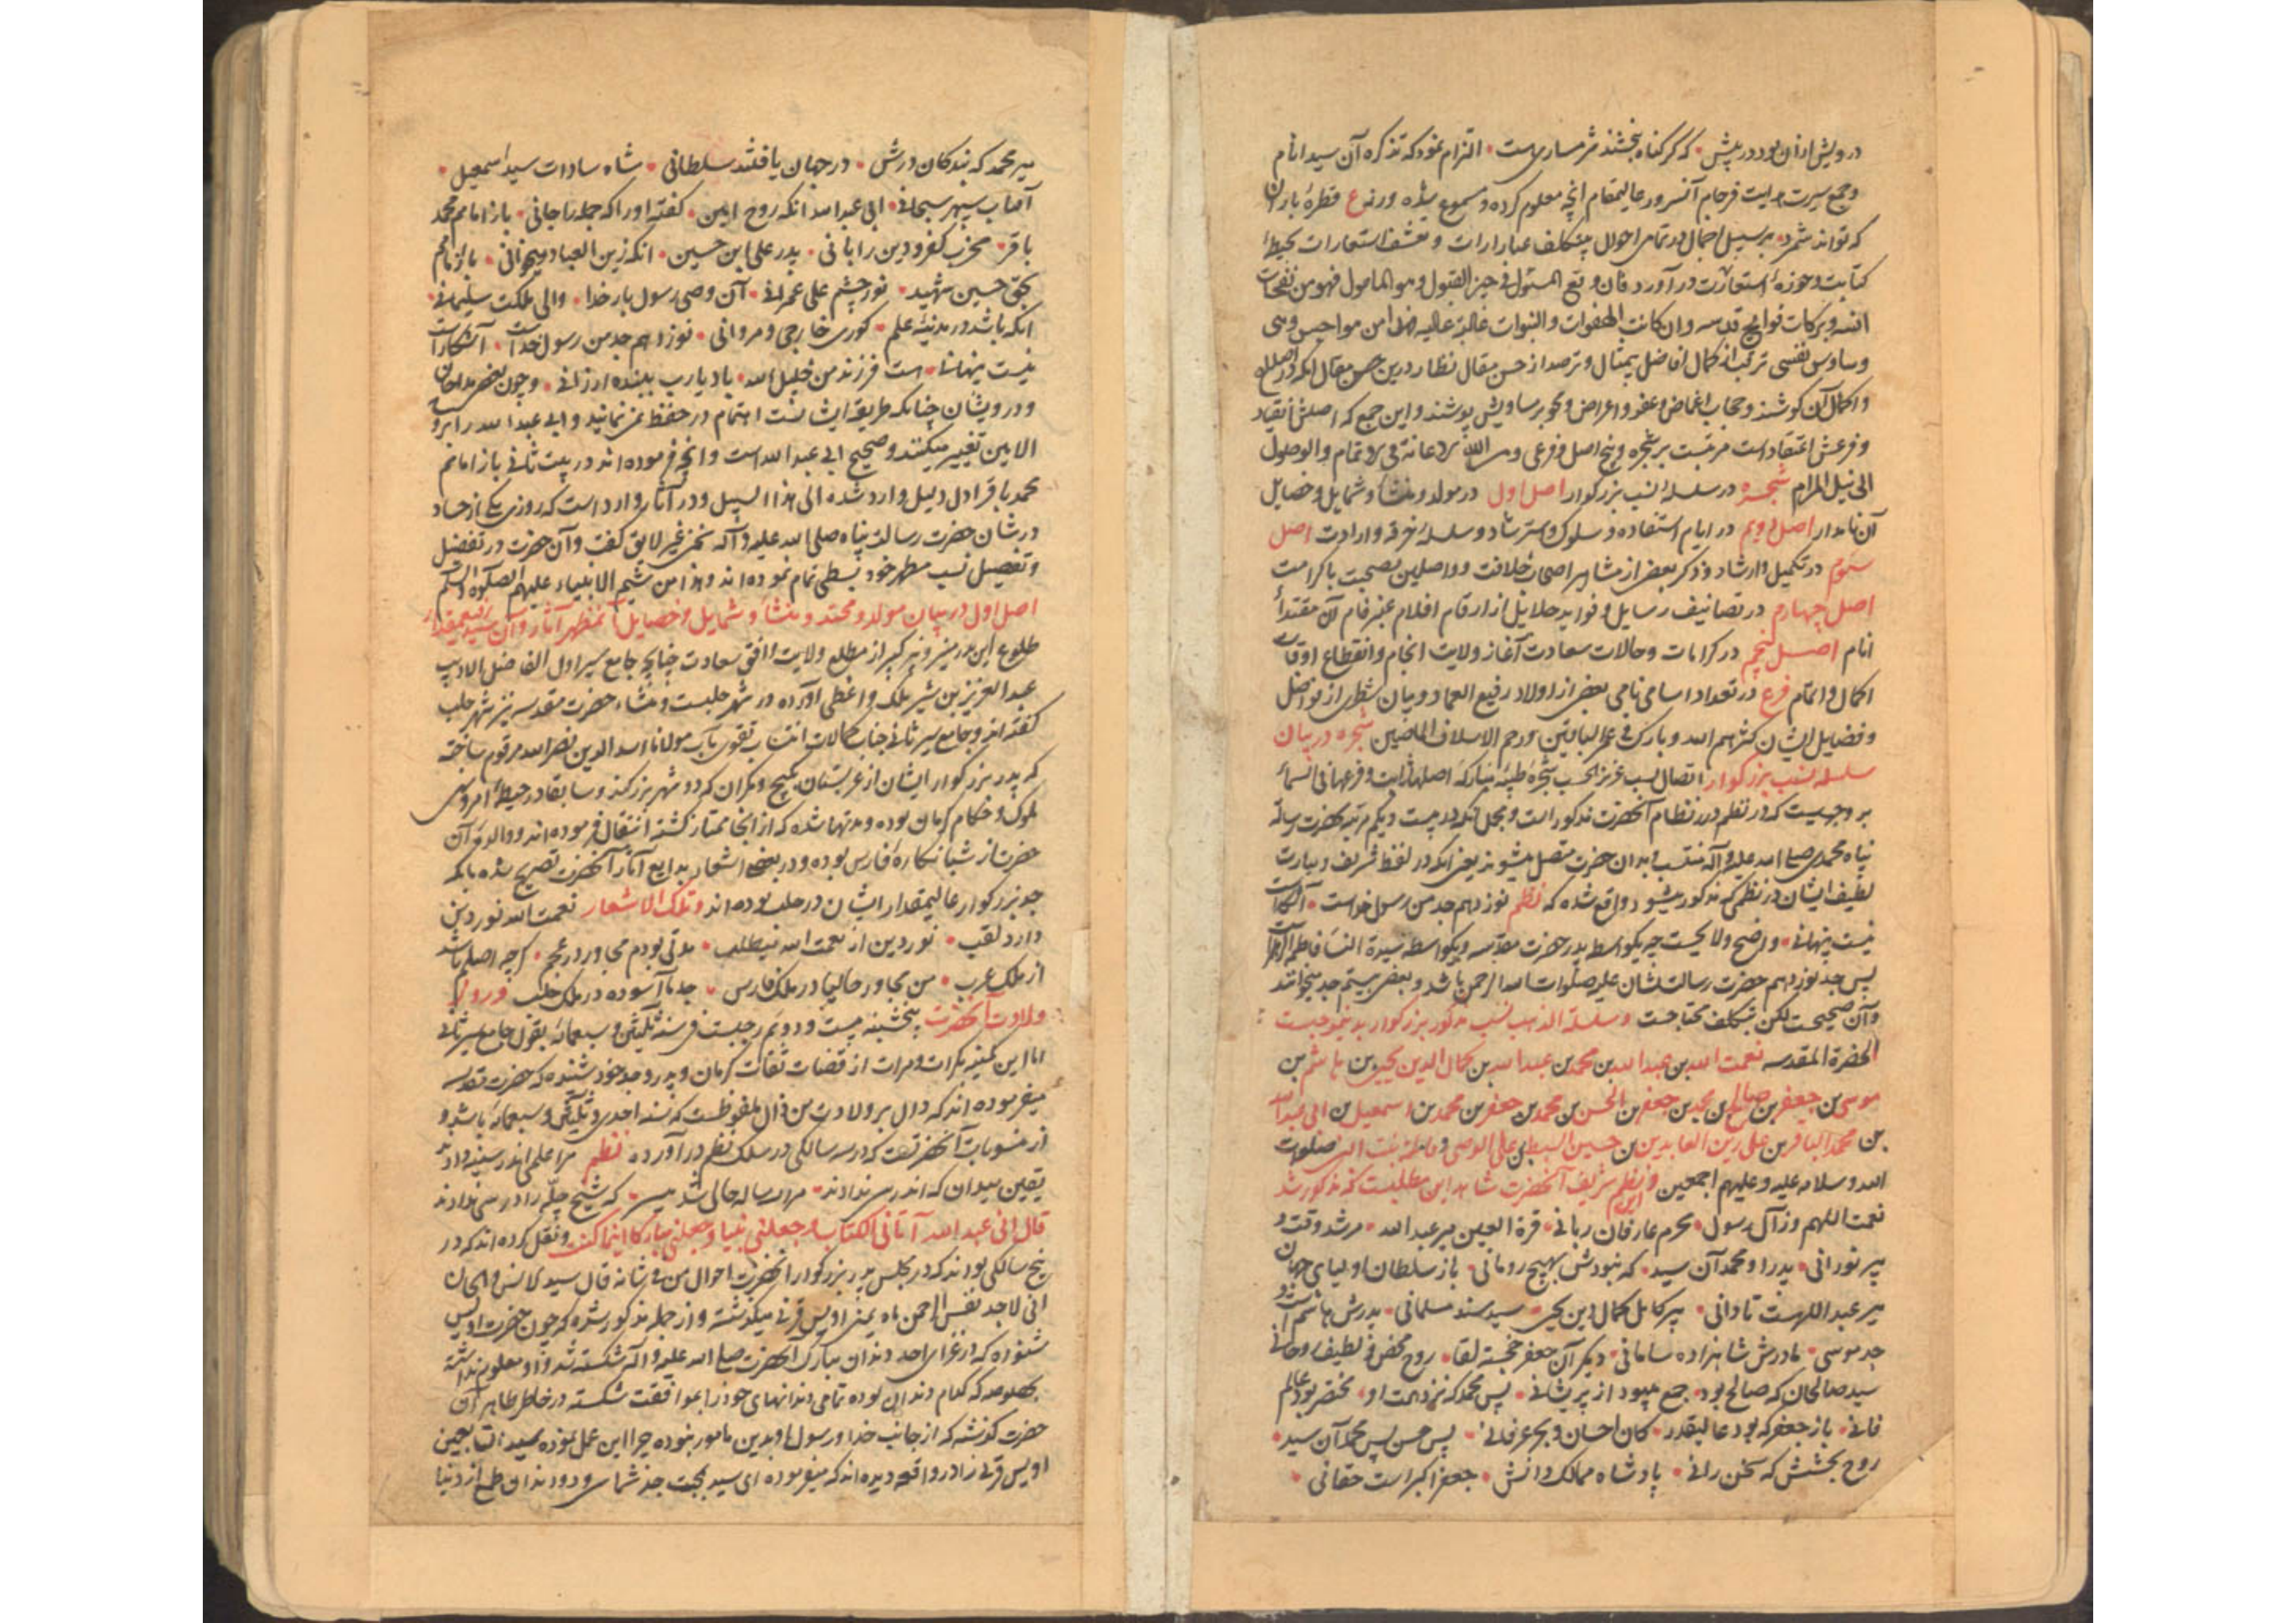 درویش ازان بود در پیش • که کر کناه بخشند شرمساری هست • التزام نمود که تذکره آن سید انام
و جمع سیرت هدایت فرجام آنسرور عالیمقام انچه معلوم کرده و مسموع شده ورنه ع قطرهٔ باران
که تواند شمرد • بر سبیل اجمال در تمامی احوال بیتکلف عبارات و تعسف استعارات بحیطهٔ
کتابت و حوزه استعارت در آورد فان وقع المسئول فی حیز القبول و هو المأمول فهو من نفحات
انسه و برکات فوایح قدسه و ان کانت الهفوات والنبوات غالبة علیه فهی من هواجس وهمی
و وساوس نفسی ترقب از کمال افاضل بیمثال و ترصد از حسن مقال نظار درین حسن مقال انکه در اصلاح
و اکمال آن کوشند و حجاب اغماض و عفو و اعراض و محو بر مساویش پوشند و این جمع که اصلش انقیاد
و فرعش اعتقاد است مرتبست بر شجره و پنج اصل و فرعی و من الله الاعانة فی الاتمام والوصول
الی نیل المرام شجره در سلسلهٔ نسب بزرکوار اصل اول در مولد و منشأ و شمایل و خصایل
آن نامدار اصل دویم در ایام استفاده و سلوک و استرشاد و سلسلهٔ خرقه و ارادت اصل
سوم در تکمیل و ارشاد و ذکر بعض از مشاهیر اصحاب خلافت و واصلین بصحبت باکرامت
اصل چهارم در تصانیف رسایل و فواید جلایل از ارقام اقلام عنبر فام آن مقتدأ
انام اصل پنجم در کرامات و حالات سعادت آغاز ولایت انجام و انقطاع اوقات
اکمال و اتمام فرع در تعداد اسامی نامی بعضی از اولاد رفیع العماد و بیان شطری از فواضل
و فضایل ایشان کثرهم الله و بارک فی عمر الباقین و رحم الاسلاف الماضین شجره در بیان
سلسله نسب بزرکوار اتصال نسب عزیز الحسب شجرهٔ طیبهٔ مبارکه اصلها ثابت و فرعها فی السماء
بر وجهیست که در نظم درر نظام آنحضرت مذکور است و مجمل آنکه در بیست و یکم مرتبه بحضرت رسالت
پناه محمدی صلی الله علیه و آله منتسب و بدان حضرت متصل میشوند یعنی انکه در لفظ شریف و عبارت
لطیف ایشان در نظمی که مذکور میشود واقع شده که نظم نوزدهم جد من رسول خداست • آشکارات
نیست پنهانی • واضح و لایحست چه بیکواسطه پدر حضرت مقدسه و بیکواسطه سیدة النسا فاطمة الزهرا
پس جد نوزدهم حضرت رسالت نشان علیه صلوات الله الرحمن باشد و بعضی بیستم جد میخوانند
و آن صحیحست لکن بتکلف محتاجست و سلسلة الذهب نسب مذکور بزرکوار بدینموجبست
الحضرة المقدسه نعمت الله بن عبدالله بن محمد بن عبدالله بن کمال الدین یحیی بن هاشم بن
موسی بن جعفر بن صالح بن محمد بن جعفر بن الحسن بن محمد بن جعفر بن محمد بن اسمعیل بن ابی عبدالله
بن محمد الباقر بن علی زین العابدین بن حسین السبط بن علی الوصی و فاطمة بنت النبی صلوات
الله و سلامه علیه و علیهم اجمعین و نظم شریف آنحضرت شاهد این مطلبست که مذکور شد
نعمت اللهم وز آل رسول • محرم عارفان ربانی • قرة العین میر عبدالله • مرشد وقت و
پیر نورانی • پدر او محمد آن سید • که نبودش بهیچ رو مانی • باز سلطان اولیای جهان
میر عبدالله است تا دانی • پیر کامل کمال دین یحیی • سید مسند مسلمانی • پدرش هاشم است و
جد موسی • مادرش شاهزاده سامانی • دیکر آن جعفر خجسته لقا • روح محض و لطیف روحانی
سید صالحان که صالح بود • جمع میبود از پریشانی • پس محمد که نزد همت او • مختصر بود عالم
فانی • باز جعفر که بود عالیقدر • کان احسان و بحر عرفانی • پس حسن پس محمد آن سید •
روح بخشش که سخن رانی • پادشاه ممالک دانش • جعفر اکبر است حقانی •
میر محمد که بندکان درش • در جهان یافتند سلطانی • شاه سادات سید اسمعیل •
آفتاب سپهر سبحانی • ابی عبدالله آنکه روح امین • کفته او را که جمله را جانی • باز امامم محمد
باقر • مخرب کفر و دین را بانی • پدر علی ابن حسین • انکه زین العباد میخوانی • باز امامم
بحق حسین شهید • نور چشم علی عمرانی • آن وصی رسول بار خدا • والی مملکت سلیمانی •
انکه باشد در مدینهٔ علم • کوری خارجی و مروانی • نوزدهم جد من رسول خداست • آشکارات
نیست پنهانی • هست فرزند من خلیل الله • باد یارب ببنده ارزانی • و چون بعضی مداحان
و درویشان چنانکه طریقه ایشانست اهتمام در حفظ نمینمایند و ابی عبدالله را بروح
الامین تغییر میکنند و صحیح ابی عبدالله است و انچه فرموده اند در بیت ثانی باز امامم
محمد باقر ادل دلیل وارد شده الی هذا السبیل و در آثار وارد است که روزی یکی از حساد
در شان حضرت رسالت پناه صلی الله علیه و آله سخن غیر لایق کفت و آن حضرت در تفضیل
و تفصیل نسب مطهر خود بسطی تمام نموده اند و هذا من شیم الانبیاء علیهم الصلوة والسلم
اصل اول در بیان مولد و محتد و منشأ و شمایل و خصایل آنمظهر آثار و آن سید رفیعمقدار
طلوع این بدر منیر و نیر کبیر از مطلع ولایت و افق سعادت چنانچه جامع سیر اول الفاضل الادیب
عبدالعزیز بن شیر ملک واعظی آورده در شهر حلبست و منشاء حضرت مقدسه نیز شهر حلب
کفته اند و جامع سیر ثانی جناب کمالات انتساب تقوی مآب مولانا سدیدالدین نصرالله مرقوم ساخته
که پدر بزرکوار ایشان از عربستان بکیچ و مکران که دو شهر بزرکند و سابقا در حیطهٔ امر و نهی
ملوک و حکام کرمان بوده و مدتها شده که از انجا ممتاز کشته انتقال فرموده اند و والدهٔ آن
حضرت از شبانکارهٔ فارس بوده و در بعضی اشعار بدایع آثار آنحضرت تصریح شده بانکه
جد بزرکوار عالیمقدار ایشان در حلب بوده اند و تلک الاشعار نعمت الله نوردین
دارد لقب • نور دین از نعمت الله میطلب • مدتی بودم مجاور در عجم • کرچه اصلم باشد
از ملک عرب • من مجاور حالیا در ملک فارس • جد ما آسوده در ملک حلب و روز
ولادت آنحضرت پنجشنبه بیست و دویم رجبست فی سنه ثلثین و سبعمائه بقول جامع سیر ثانی
اما این کمینه بکرات و مرات از قضات ثقات کرمان و پدر و جد خود شنوده که حضرت مقدسه
میفرموده اند که دال بر ولادت من ذال ملفوظست که سنه احدی و ثلثین و سبعمائه باشد و
از منسوبات آنحضرتست که در سه سالکی در سلک نظم در آورده نظم مرا علمی اندر سینه دادند
یقین میدان که اندر سی ندادند • مرا در سه سالی حالی شد میسر • که شیخ چله را در سی ندادند
قال انی عبدالله آتانی الکتاب و جعلنی نبیا و جعلنی مبارکا اینما کنت و نقل کرده اند که در
پنج سالکی بوده اند که در مجلس پدر بزرکوار آنحضرت احوال من فی شانه قال سید الانس والجان
انی لاجد نفس الرحمن ماه یمنی اویس قرنی میکذشته و از جمله مذکور شده که چون حضرت اویس
شنوده که از غزای احد دندان مبارک آنحضرت صلی الله علیه و آله شکسته شد و او معلوم نداشته
بخصوصه که کدام دندان بوده تمامی دندانهای خود را بموافقت شکسته در خاطر طاهر آن
حضرت کذشته که از جانب خدا و رسول او بدین مامور نبوده چرا این عمل نموده سید التابعین
اویس قرنی را در واقعه دیده اند که میفرموده ای سید بجهت جد شما سی و دو دندان طمع از دنیا